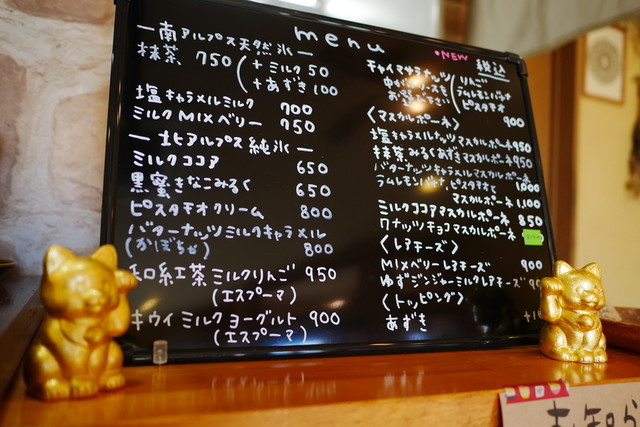 menu
—南アルプス天然氷—
抹茶 750 (+ミルク 50
+あずき 100
塩キャラメルミルク 700
ミルクMIXベリー 750
—北アルプス純氷—
ミルクココア 650
黒蜜きなこみるく 650
ピスタチオクリーム 800
バターナッツミルクキャラメル
(かぼちゃ) 800
和紅茶ミルクりんご 950
(エスプーマ)
キウイミルクヨーグルト 900
(エスプーマ)
NEW 税込
チャイマサラナッツ
りんご
ラムレモンバナナ
ピスタチオ
900
〈マスカルポーネ〉
塩キャラメルナッツマスカルポーネ 950
抹茶みるくあずきマスカルポーネ 950
バターナッツキャラメルマスカルポーネ 1,000
ラムレモンバナナ、ピスタチオと
マスカルポーネ 1,100
ミルクココアマスカルポーネ 850
ワナッツチョコマスカルポーネ
〈レアチーズ〉
MIXベリーレアチーズ 900
ゆずジンジャーミルクレアチーズ
〈トッピング〉
あずき
お知ら